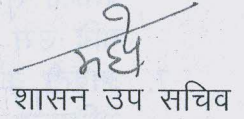 शासन उप सचिव